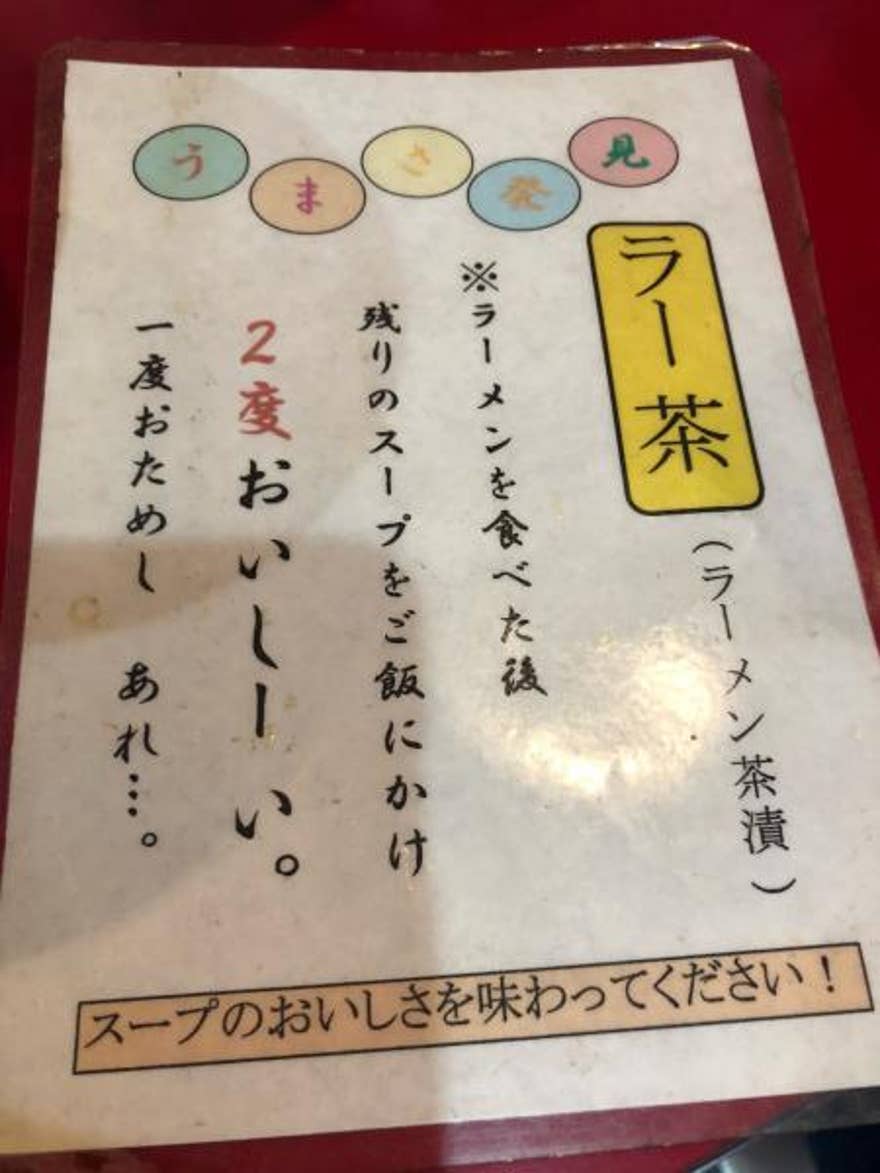 うまさ発見
ラー茶
(ラーメン茶漬)
※ラーメンを食べた後
残りのスープをご飯にかけ
2度おいしーい。
一度おためし あれ…。
スープのおいしさを味わってください!